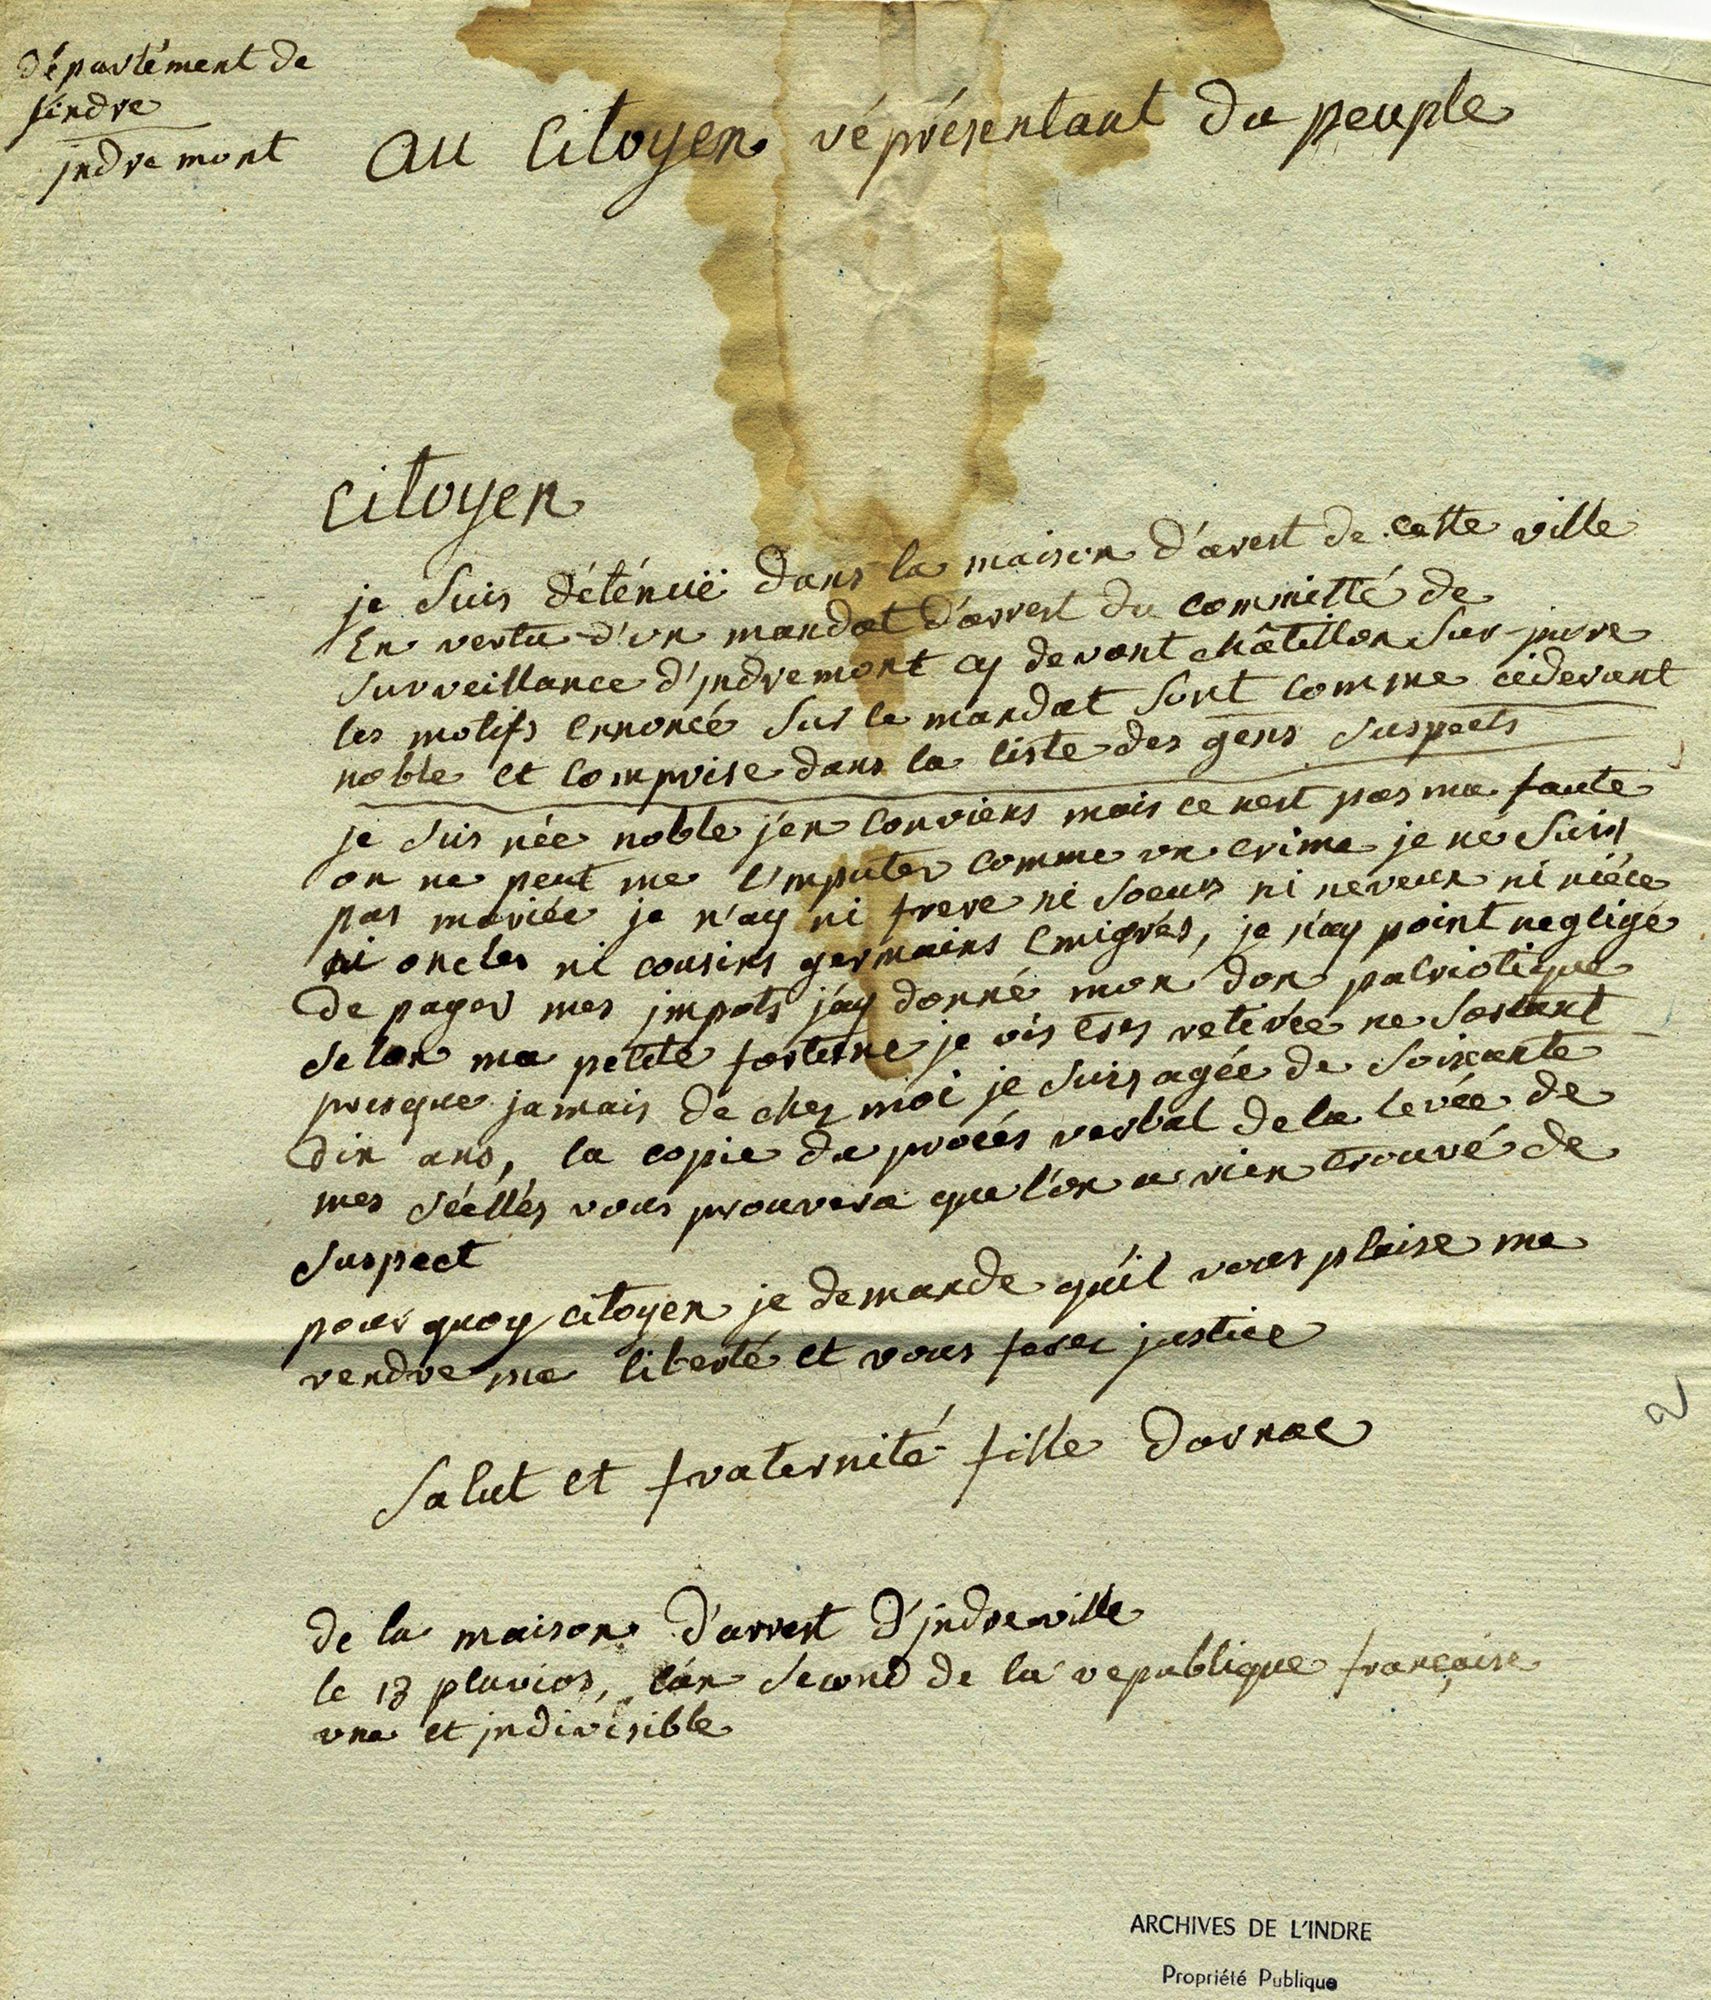 département de
l'indre
jndremont
au Citoyen réprésentant du peuple
Citoyen
je suis déténuë dans la maison d'arest de cette ville
En vertu d'un mandat d'arrest du committé de
surveillance d'jndremont cy devant châtillon sur jndre
les motifs Ennoncé sur le mandat sont comme cidevant
noble et comprise dans la liste des gens suspects
je suis née noble j'en conviens mais ce nest pas ma faute
on ne peut me l'imputer comme un crime je ne suis
pas mariée je n'ay ni frere ni soeurs ni neveux ni niéce
ni oncles ni cousins germains Emigrés, je n'ay point negligé
de payer mes jmpots j'ay donné mon don patriotique
selon ma petite fortune je vis tres retirée ne sortant
presque jamais de chez moi je suis agée de soixante
dix ans, la copie du procés verbal de la levée de
mes scéllés vous prouvera que l'on a rien trouvé de
suspect
pour quoy citoyen je demande qu'il vous plaise me
rendre ma liberté et vous ferez justice
Salut et fraternité fille Dornac
de la maison d'arrest d'jndreville
le 13 pluvios, l'an second de la republique française
une et jndivisible
2
ARCHIVES DE L'INDRE
Propriété Publique